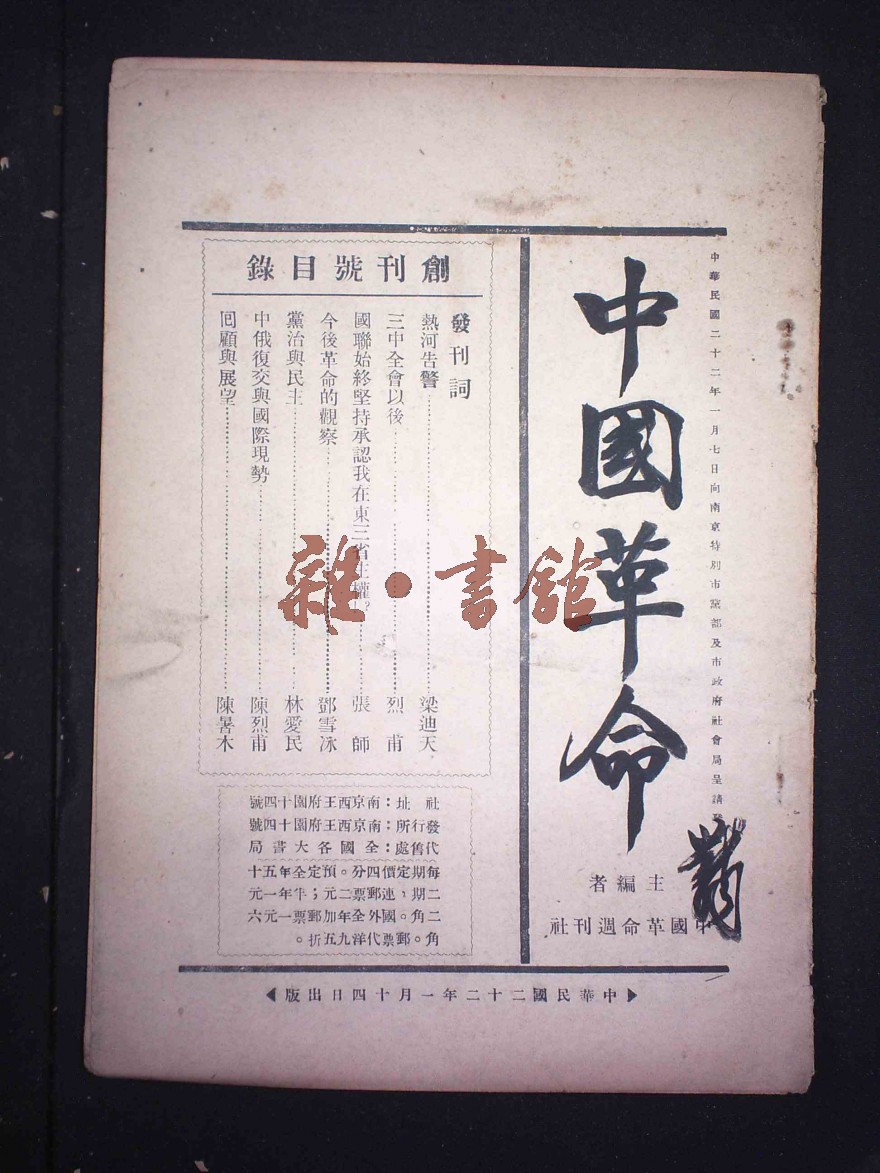 中華民國二十二年一月七日向南京特別市黨部及市政府社會局呈請
中國革命
主編者
中國革命週刊社
創刊號目錄
發刊詞
熱河告警……梁迪天
三中全會以後……烈甫
國聯始終堅持承認我在東三省主權?……張師
今後革命的觀察……鄧雪冰
黨治與民主……林愛民
中俄復交與國際現勢……陳烈甫
回顧與展望……陳暑木
社址：南京西王府園十四號
發行所：南京西王府園十四號
代售處：全國各大書局
每期定價四分。預定全年五十
二期，連郵票二元；半年一元
二角。國外全年加郵票一元六
角。郵票代洋九五折。
中華民國二十二年一月十四日出版
雜·書館